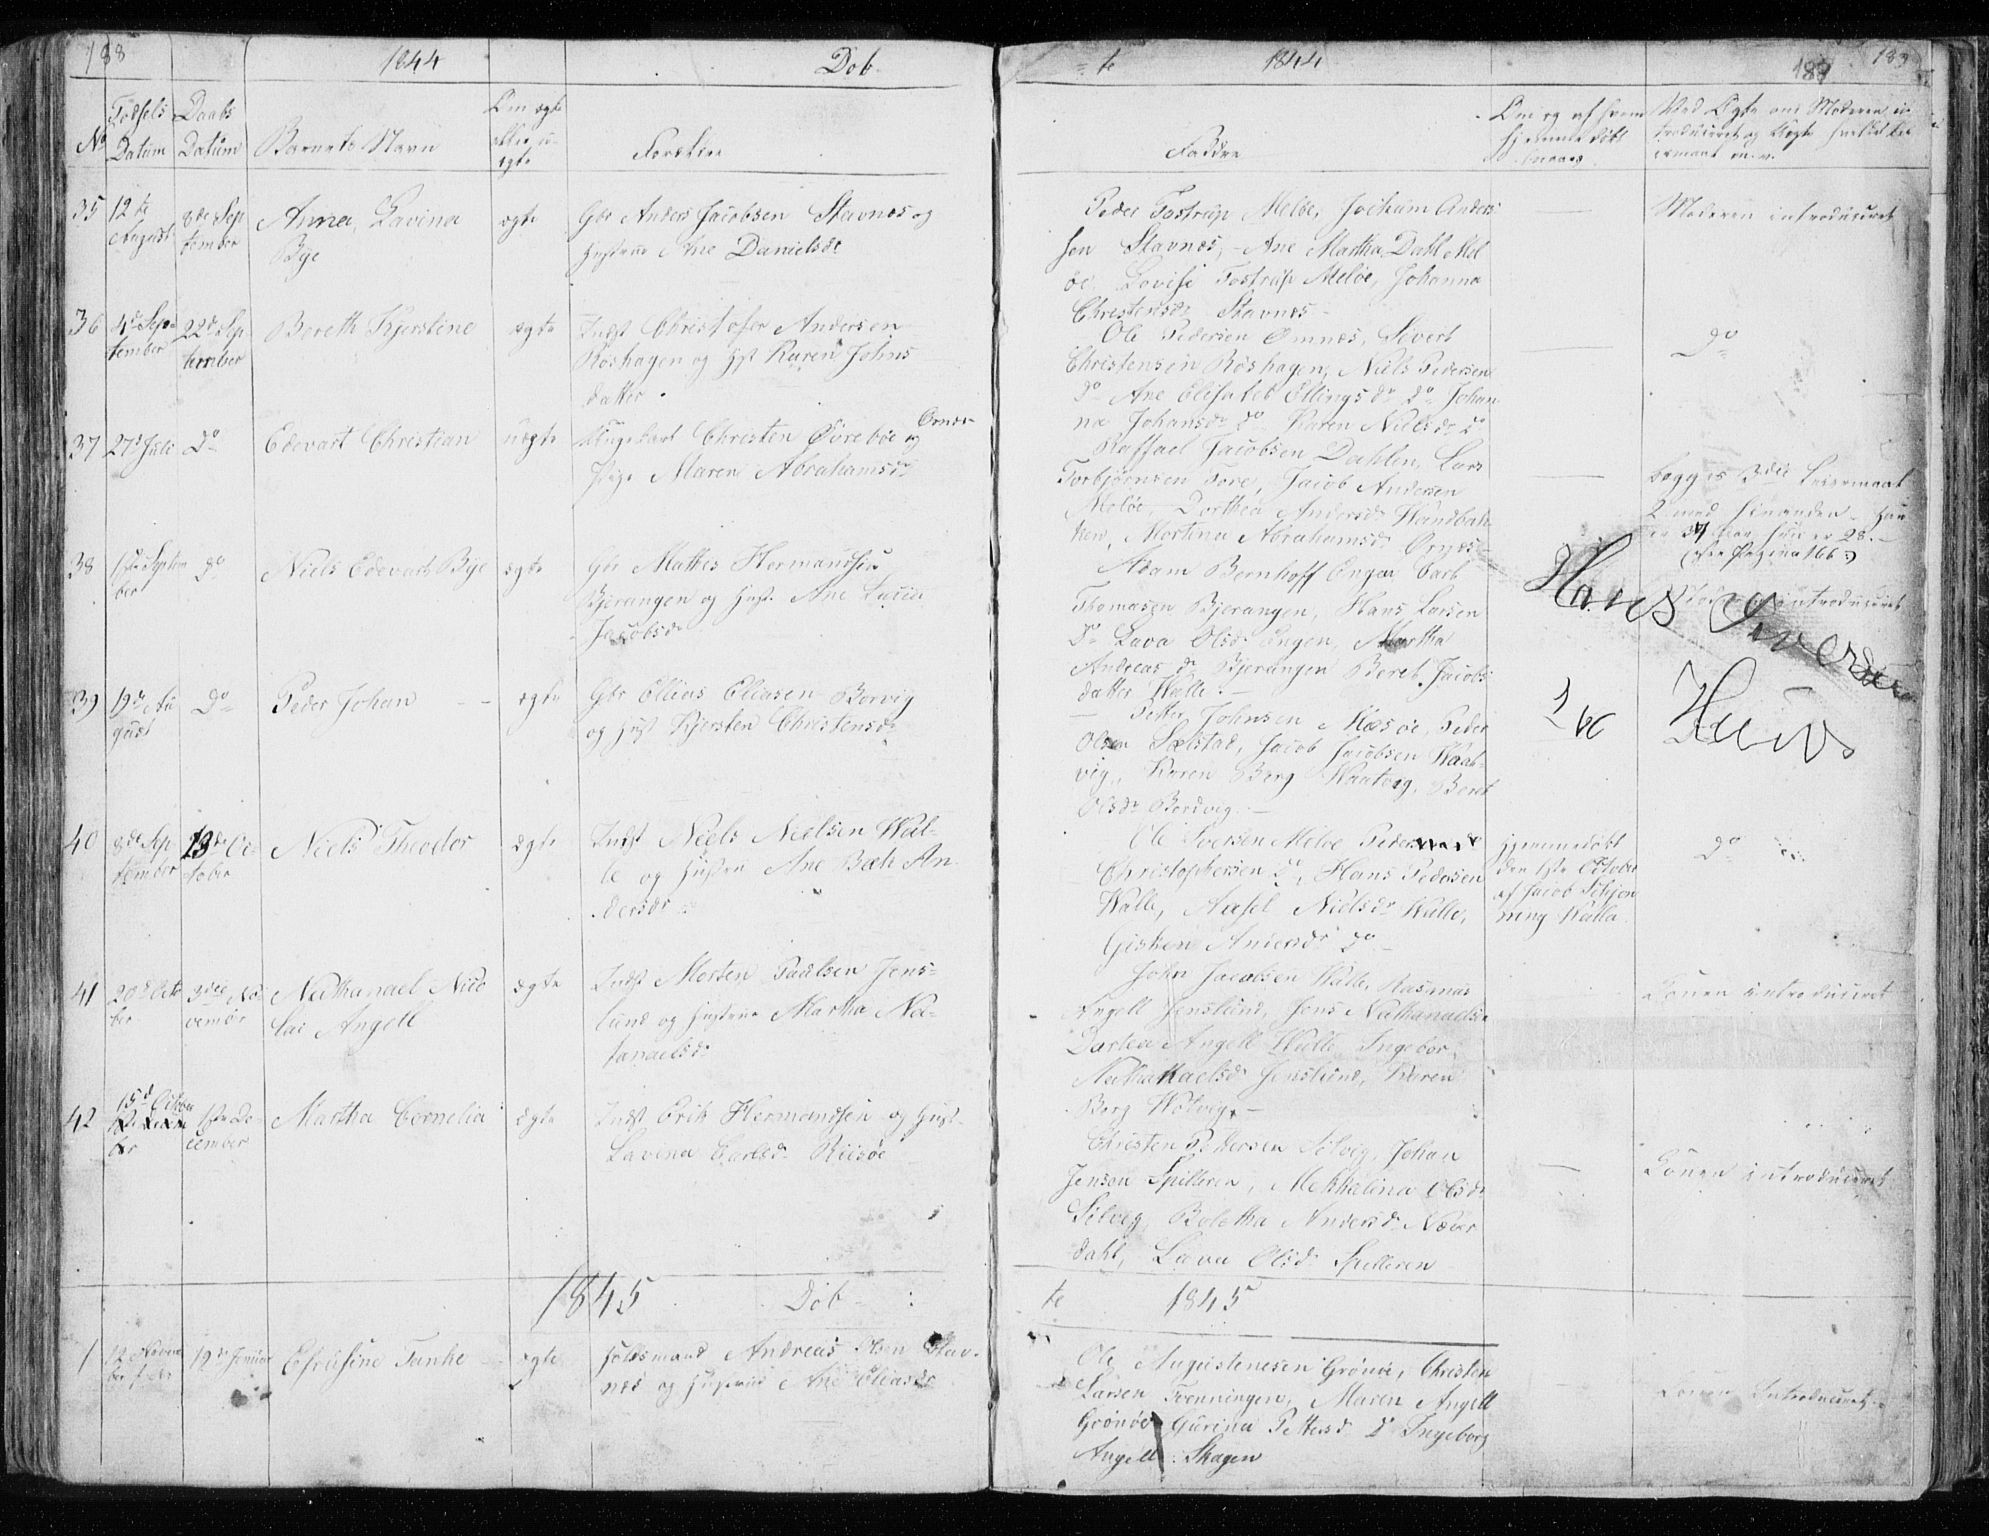 188 1844 Døb-
No Fødsels Datum Daabs Datum Barnets Navn Om ægte eller uægte Forældre
35 12te August 8de September Anna Lavina Bye ægte Gbr Anders Jacobsen Stavnes og
Hustrue Ane Danielsdr
36 4de September 22de September Bereth Kjerstine ægte Indst Christofer Andersen
Røshagen og Hst Karen Johns
datter
37 27de Juli Do Edevart Christian uægte Ungekarl Christen Øvrebøe og Ørnes
Pige Maren Abrahamsdr
38 1ste September Do Niels Edevart Bye ægte Gbr Mathes Hermandsen
Bjerangen og Hust Ane Lucie
Jacobsdr
39 19de August Do Peder Johan ægte Gbr Ellias Eliasen Borvig
og Hust Kjersten Christensdr
40 8de September 13de October Niels Theodor ægte Indst Niels Nielsen Wal-
le og Hustru Ane Bech An-
dersdr
41 20de October 3die November Nathanael Nico
lai Angell ægte Indst Morten Paulsen Jens-
lund og Hustrue Martha Na-
tanaelsdr
42 15de October 1ste December Martha Cornelia ægte Indst Erik Hermandsen og Hust
Lavina Carlsdr Riisøe
1845 Døb-
1 12 November 19de Januar Efrusine Tanke ægte Huusmand Andreas Olsen Stav-
nes og Hustrue Ane Eliasdr
-te 1844 189 189
Faddre Om og af hvem hjemmedøbt
Peder Tostrup Meløe, Jochum Anders
sen Stavnes, Ane Martha Dahl Mel
øe, Lovise Tostrup Meløe, Johanna
Christensdr Stavnes
— Moderen introduceret
Ole Pedersen Ømnes, Sivert
Christensen Røshagen, Niels Pedersen
Do Ane Elisabeth Ellingsdr Do Johan
na Johansdr Do Karen Nielsdr Do
— Do
Raffael Jacobsen Dahlen, Lars
Torbjørnsen Fore, Jacob Andersen
Meløe, Dorthea Andersdr Wandbak
ken, Martina Abrahamsdr Ørnes
— begges 3die Leiermaal
2 med hinanden
hun er 28.
Pagina 166
Adam Bernhoff Engen, Carl
Thomasen Bjerangen, Hans Larsen
Do Lava Olsdr Engen, Martha
Andreasdr Bjerangen Beret Jacobs
datter Walle
Moderen introduceret
Hans
Petter Johnsen Mesøe, Peder
Olsen Selstad, Jacob Jacobsen Waat-
vig, Karen Berg Waatvig, Beret
Olsdr Bordvig
Ole Iversen Meløe Peder
Christophersen Do, Hans Pedersen
Walle, Axsel Nielsdr Walle,
Gisken Andersdr Do
hjemmedøbt
den 1ste October
af Jacob Schjøn
ning Walla
Do
John Jacobsen Walle, Rasmus
Angell Jenslund, Jens Nathanaelsen
Dorthea Angell Walle, Ingebor
Nathanaelsdr Jenslund, Karen
Berg Wotvig
Konen introduceret
Christen Pettersen Selvig, Johan
Jensen Spilleren, Mekkelina Olsdr
Selvig, Boletha Andersdr Næver
dahl, Lava Olsdr Spilleren
— Konen introduceret
te 1845
Ole Augustenesen Grønøe, Christen
Larsen Tvenningen, Maren Angell
Grønøe Gurina Pettersdr Do Ingeborg
Angell Skagen
Konen Introduceret